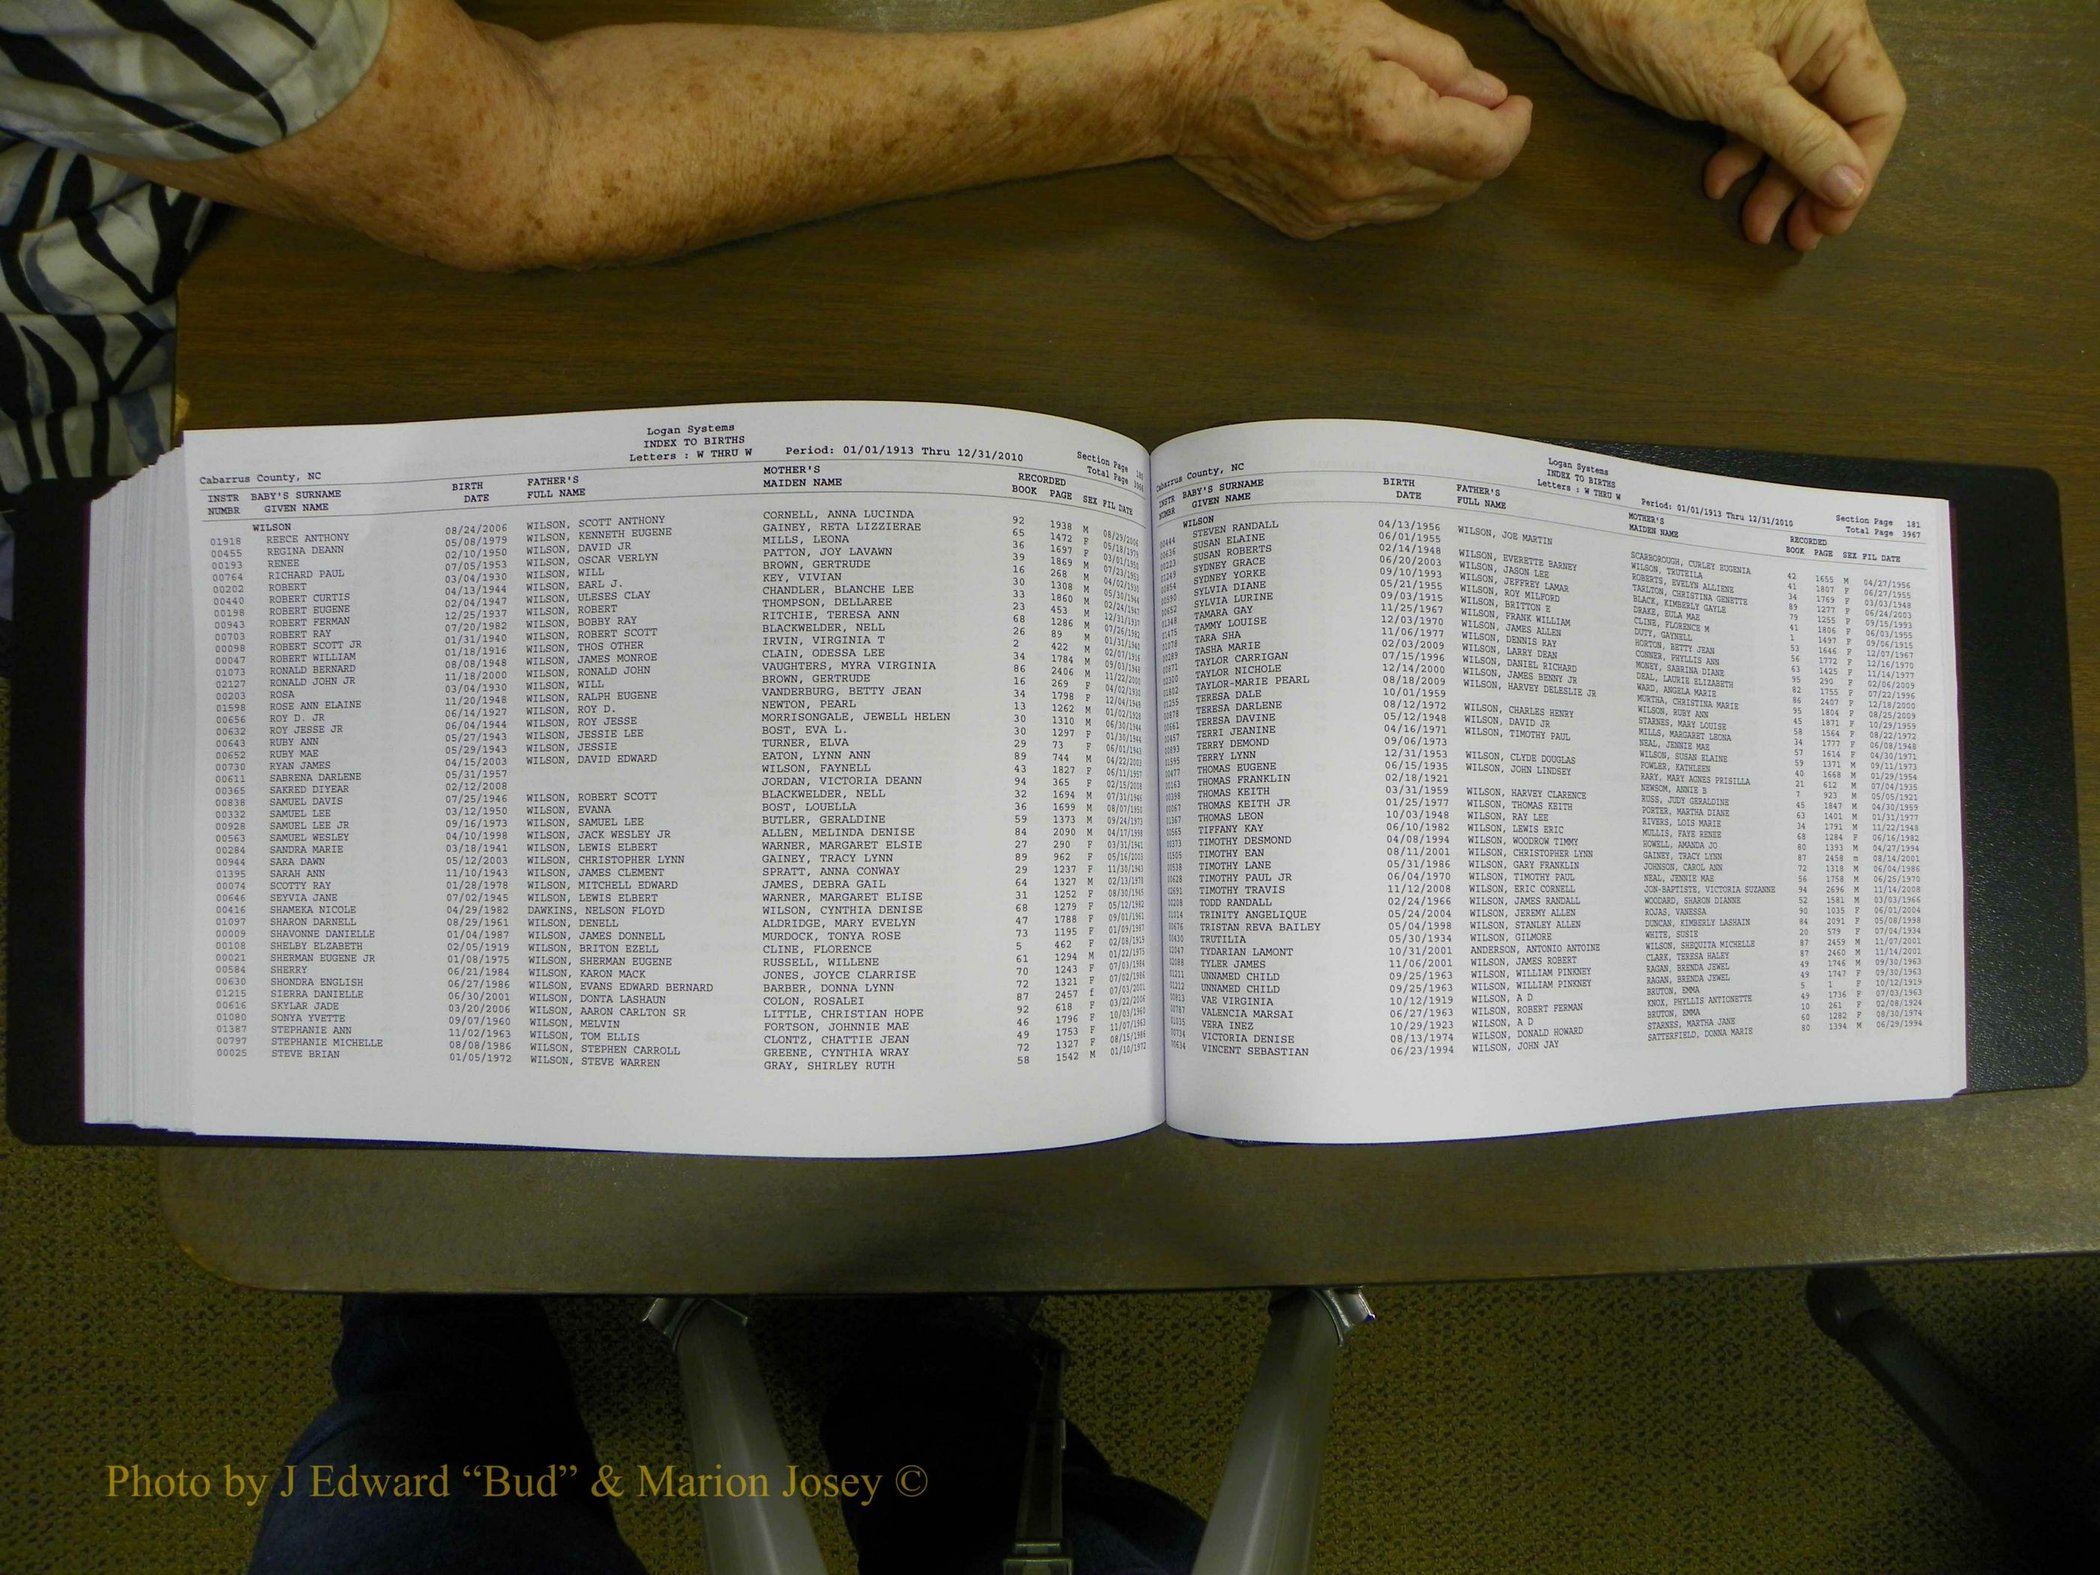 Logan Systems
INDEX TO BIRTHS
Letters : W THRU W Period: 01/01/1913 Thru 12/31/2010
Section Page 180
Total Page 1966
Cabarrus County, NC
INSTR BABY'S SURNAME BIRTH FATHER'S MOTHER'S RECORDED
NUMBR GIVEN NAME DATE FULL NAME MAIDEN NAME BOOK PAGE SEX FIL DATE
WILSON
01918 REECE ANTHONY 08/24/2006 WILSON, SCOTT ANTHONY CORNELL, ANNA LUCINDA 92 1938 M 08/29/2006
00455 REGINA DEANN 05/08/1979 WILSON, KENNETH EUGENE GAINEY, RETA LIZZIERAE 65 1472 F 05/18/1979
00193 RENEE 02/10/1950 WILSON, DAVID JR MILLS, LEONA 36 1697 F 03/01/1950
00764 RICHARD PAUL 07/05/1953 WILSON, OSCAR VERLYN PATTON, JOY LAVAWN 39 1869 M 07/23/1953
00202 ROBERT 03/04/1930 WILSON, WILL BROWN, GERTRUDE 16 268 M 04/02/1930
00440 ROBERT CURTIS 04/13/1944 WILSON, EARL J. KEY, VIVIAN 30 1308 M 05/30/1944
00198 ROBERT EUGENE 02/04/1947 WILSON, ULESES CLAY CHANDLER, BLANCHE LEE 33 1860 M 02/24/1947
00943 ROBERT FERMAN 12/25/1937 WILSON, ROBERT THOMPSON, DELLAREE 23 453 M 12/31/1937
00703 ROBERT RAY 07/20/1982 WILSON, BOBBY RAY RITCHIE, TERESA ANN 68 1286 M 07/26/1982
00098 ROBERT SCOTT JR 01/31/1940 WILSON, ROBERT SCOTT BLACKWELDER, NELL 26 89 M 01/31/1940
00047 ROBERT WILLIAM 01/18/1916 WILSON, THOS OTHER IRVIN, VIRGINIA T 2 422 M 02/07/1916
01073 RONALD BERNARD 08/08/1948 WILSON, JAMES MONROE CLAIN, ODESSA LEE 34 1784 M 09/03/1948
02127 RONALD JOHN JR 11/18/2000 WILSON, RONALD JOHN VAUGHTERS, MYRA VIRGINIA 86 2406 M 11/22/2000
00203 ROSA 03/04/1930 WILSON, WILL BROWN, GERTRUDE 16 269 F 04/02/1930
01598 ROSE ANN ELAINE 11/20/1948 WILSON, RALPH EUGENE VANDERBURG, BETTY JEAN 34 1798 F 12/04/1948
00656 ROY D. JR 06/14/1927 WILSON, ROY D. NEWTON, PEARL 13 1262 M 01/02/1928
00632 ROY JESSE JR 06/04/1944 WILSON, ROY JESSE MORRISONGALE, JEWELL HELEN 30 1310 M 06/30/1944
00643 RUBY ANN 05/27/1943 WILSON, JESSIE LEE BOST, EVA L. 30 1297 F 01/30/1944
00652 RUBY MAE 05/29/1943 WILSON, JESSIE TURNER, ELVA 29 73 F 06/01/1943
00730 RYAN JAMES 04/15/2003 WILSON, DAVID EDWARD EATON, LYNN ANN 89 744 M 04/22/2003
00611 SABRENA DARLENE 05/31/1957 WILSON, FAYNELL 43 1827 F 06/11/1957
00365 SAKRED DIYEAR 02/12/2008 JORDAN, VICTORIA DEANN 94 365 F 02/15/2008
00838 SAMUEL DAVIS 07/25/1946 WILSON, ROBERT SCOTT BLACKWELDER, NELL 32 1694 M 07/31/1946
00332 SAMUEL LEE 03/12/1950 WILSON, EVANA BOST, LOUELLA 36 1699 M 08/07/1951
00928 SAMUEL LEE JR 09/16/1973 WILSON, SAMUEL LEE BUTLER, GERALDINE 59 1373 M 09/24/1973
00563 SAMUEL WESLEY 04/10/1998 WILSON, JACK WESLEY JR ALLEN, MELINDA DENISE 84 2090 M 04/17/1998
00284 SANDRA MARIE 03/18/1941 WILSON, LEWIS ELBERT WARNER, MARGARET ELSIE 27 290 F 03/31/1941
00944 SARA DAWN 05/12/2003 WILSON, CHRISTOPHER LYNN GAINEY, TRACY LYNN 89 962 F 05/16/2003
01395 SARAH ANN 11/10/1943 WILSON, JAMES CLEMENT SPRATT, ANNA CONWAY 29 1237 F 11/30/1943
00074 SCOTTY RAY 01/28/1978 WILSON, MITCHELL EDWARD JAMES, DEBRA GAIL 64 1327 M 02/13/1978
00646 SEYVIA JANE 07/02/1945 WILSON, LEWIS ELBERT WARNER, MARGARET ELISE 31 1252 F 08/30/1945
00416 SHAMEKA NICOLE 04/29/1982 DAWKINS, NELSON FLOYD WILSON, CYNTHIA DENISE 68 1279 F 05/12/1982
01097 SHARON DARNELL 08/29/1961 WILSON, DENELL ALDRIDGE, MARY EVELYN 47 1788 F 09/01/1961
00009 SHAVONNE DANIELLE 01/04/1987 WILSON, JAMES DONNELL MURDOCK, TONYA ROSE 73 1195 F 01/09/1987
00108 SHELBY ELZABETH 02/05/1919 WILSON, BRITON EZELL CLINE, FLORENCE 5 462 F 02/08/1919
00021 SHERMAN EUGENE JR 01/08/1975 WILSON, SHERMAN EUGENE RUSSELL, WILLENE 61 1294 M 01/22/1975
00584 SHERRY 06/21/1984 WILSON, KARON MACK JONES, JOYCE CLARRISE 70 1243 F 07/03/1984
00630 SHONDRA ENGLISH 06/27/1986 WILSON, EVANS EDWARD BERNARD BARBER, DONNA LYNN 72 1321 F 07/02/1986
01215 SIERRA DANIELLE 06/30/2001 WILSON, DONTA LASHAUN COLON, ROSALEI 87 2457 f 07/03/2001
00616 SKYLAR JADE 03/20/2006 WILSON, AARON CARLTON SR LITTLE, CHRISTIAN HOPE 92 618 F 03/22/2006
01080 SONYA YVETTE 09/07/1960 WILSON, MELVIN FORTSON, JOHNNIE MAE 46 1796 F 10/03/1960
01387 STEPHANIE ANN 11/02/1963 WILSON, TOM ELLIS CLONTZ, CHATTIE JEAN 49 1753 F 11/07/1963
00797 STEPHANIE MICHELLE 08/08/1986 WILSON, STEPHEN CARROLL GREENE, CYNTHIA WRAY 72 1327 F 08/15/1986
00025 STEVE BRIAN 01/05/1972 WILSON, STEVE WARREN GRAY, SHIRLEY RUTH 58 1542 M 01/10/1972
Logan Systems
INDEX TO BIRTHS
Letters : W THRU W Period: 01/01/1913 Thru 12/31/2010
Section Page 181
Total Page 1967
Cabarrus County, NC
INSTR BABY'S SURNAME BIRTH FATHER'S MOTHER'S RECORDED
NUMBR GIVEN NAME DATE FULL NAME MAIDEN NAME BOOK PAGE SEX FIL DATE
WILSON
00444 STEVEN RANDALL 04/13/1956 WILSON, JOE MARTIN SCARBOROUGH, CURLEY EUGENIA 42 1655 M 04/27/1956
00636 SUSAN ELAINE 06/01/1955 WILSON, TRUTEILA 41 1807 F 06/27/1955
00223 SUSAN ROBERTS 02/14/1948 WILSON, EVERETTE BARNEY ROBERTS, EVELYN ALLIENE 34 1769 F 03/03/1948
01249 SYDNEY GRACE 06/20/2003 WILSON, JASON LEE TARLTON, CHRISTINA GENETTE 89 1277 F 06/24/2003
00854 SYDNEY YORKE 09/10/1993 WILSON, JEFFREY LAMAR BLACK, KIMBERLY GAYLE 79 1255 F 09/15/1993
00590 SYLVIA DIANE 05/21/1955 WILSON, ROY MILFORD DRAKE, EULA MAE 41 1806 F 06/03/1955
00652 SYLVIA LURINE 09/03/1915 WILSON, BRITTON E CLINE, FLORENCE M 1 1497 F 09/06/1915
01348 TAMARA GAY 11/25/1967 WILSON, FRANK WILLIAM DUTY, GAYNELL 53 1646 F 12/07/1967
01475 TAMMY LOUISE 12/03/1970 WILSON, JAMES ALLEN HORTON, BETTY JEAN 56 1772 F 12/16/1970
01078 TARA SHA 11/06/1977 WILSON, DENNIS RAY CONNER, PHYLLIS ANN 63 1425 F 11/14/1977
00289 TASHA MARIE 02/03/2009 WILSON, LARRY DEAN MONEY, SABRINA DIANE 95 290 F 02/06/2009
00871 TAYLOR CARRIGAN 07/15/1996 WILSON, DANIEL RICHARD DEAL, LAURIE ELIZABETH 82 1755 F 07/22/1996
02300 TAYLOR NICHOLE 12/14/2000 WILSON, JAMES BENNY JR WARD, ANGELA MARIE 86 2407 F 12/18/2000
01802 TAYLOR-MARIE PEARL 08/18/2009 WILSON, HARVEY DELESLIE JR MURTHA, CHRISTINA MARIE 95 1804 F 08/25/2009
01255 TERESA DALE 10/01/1959 WILSON, RUBY ANN 45 1871 F 10/29/1959
00878 TERESA DARLENE 08/12/1972 WILSON, CHARLES HENRY STARNES, MARY LOUISE 58 1564 F 08/22/1972
00661 TERESA DAVINE 05/12/1948 WILSON, DAVID JR MILLS, MARGARET LEONA 34 1777 F 06/08/1948
00457 TERRI JEANINE 04/16/1971 WILSON, TIMOTHY PAUL NEAL, JENNIE MAE 57 1614 F 04/30/1971
00893 TERRY DEMOND 09/06/1973 WILSON, SUSAN ELAINE 59 1371 M 09/11/1973
01595 TERRY LYNN 12/31/1953 WILSON, CLYDE DOUGLAS FOWLER, KATHLEEN 40 1668 M 01/29/1954
00477 THOMAS EUGENE 06/15/1935 WILSON, JOHN LINDSEY RARY, MARY AGNES PRISILLA 21 612 M 07/04/1935
00163 THOMAS FRANKLIN 02/18/1921 NEWSOM, ANNIE B 7 923 M 05/05/1921
00398 THOMAS KEITH 03/31/1959 WILSON, HARVEY CLARENCE RUSS, JUDY GERALDINE 45 1847 M 04/30/1959
00067 THOMAS KEITH JR 01/25/1977 WILSON, THOMAS KEITH PORTER, MARTHA DIANE 63 1401 M 01/31/1977
01367 THOMAS LEON 10/03/1948 WILSON, RAY LEE RIVERS, LOIS MARIE 34 1791 M 11/22/1948
00565 TIFFANY KAY 06/10/1982 WILSON, LEWIS ERIC MULLIS, FAYE RENEE 68 1284 F 06/16/1982
00373 TIMOTHY DESMOND 04/08/1994 WILSON, WOODROW TIMMY HOWELL, AMANDA JO 80 1393 M 04/27/1994
01505 TIMOTHY EAN 08/11/2001 WILSON, CHRISTOPHER LYNN GAINEY, TRACY LYNN 87 2458 m 08/14/2001
00538 TIMOTHY LANE 05/31/1986 WILSON, GARY FRANKLIN JOHNSON, CAROL ANN 72 1318 M 06/04/1986
00628 TIMOTHY PAUL JR 06/04/1970 WILSON, TIMOTHY PAUL NEAL, JENNIE MAE 56 1758 M 06/25/1970
02691 TIMOTHY TRAVIS 11/12/2008 WILSON, ERIC CORNELL JON-BAPTISTE, VICTORIA SUZANNE 94 2696 M 11/14/2008
00208 TODD RANDALL 02/24/1966 WILSON, JAMES RANDALL WOODARD, SHARON DIANNE 52 1581 M 03/03/1966
01014 TRINITY ANGELIQUE 05/24/2004 WILSON, JEREMY ALLEN ROJAS, VANESSA 90 1035 F 06/01/2004
00676 TRISTAN REVA BAILEY 05/04/1998 WILSON, STANLEY ALLEN DUNCAN, KIMBERLY LASHAIN 84 2091 F 05/08/1998
00430 TRUTILIA 05/30/1934 WILSON, GILMORE WHITE, SUSIE 20 579 F 07/04/1934
02047 TYDARIAN LAMONT 10/31/2001 ANDERSON, ANTONIO ANTOINE WILSON, SHEQUITA MICHELLE 87 2459 M 11/07/2001
02088 TYLER JAMES 11/06/2001 WILSON, JAMES ROBERT CLARK, TERESA HALEY 87 2460 M 11/14/2001
01211 UNNAMED CHILD 09/25/1963 WILSON, WILLIAM PINKNEY RAGAN, BRENDA JEWEL 49 1746 M 09/30/1963
01212 UNNAMED CHILD 09/25/1963 WILSON, WILLIAM PINKNEY RAGAN, BRENDA JEWEL 49 1747 F 09/30/1963
00813 VAE VIRGINIA 10/12/1919 WILSON, A D BRUTON, EMMA 5 1 F 10/12/1919
00787 VALENCIA MARSAI 06/27/1963 WILSON, ROBERT FERMAN KNOX, PHYLLIS ANTIONETTE 49 1736 F 07/03/1963
01035 VERA INEZ 10/29/1923 WILSON, A D BRUTON, EMMA 10 261 F 02/08/1924
00734 VICTORIA DENISE 08/13/1974 WILSON, DONALD HOWARD STARNES, MARTHA JANE 60 1282 F 08/30/1974
00634 VINCENT SEBASTIAN 06/23/1994 WILSON, JOHN JAY SATTERFIELD, DONNA MARIE 80 1394 M 06/29/1994
Photo by J Edward “Bud” & Marion Josey ©